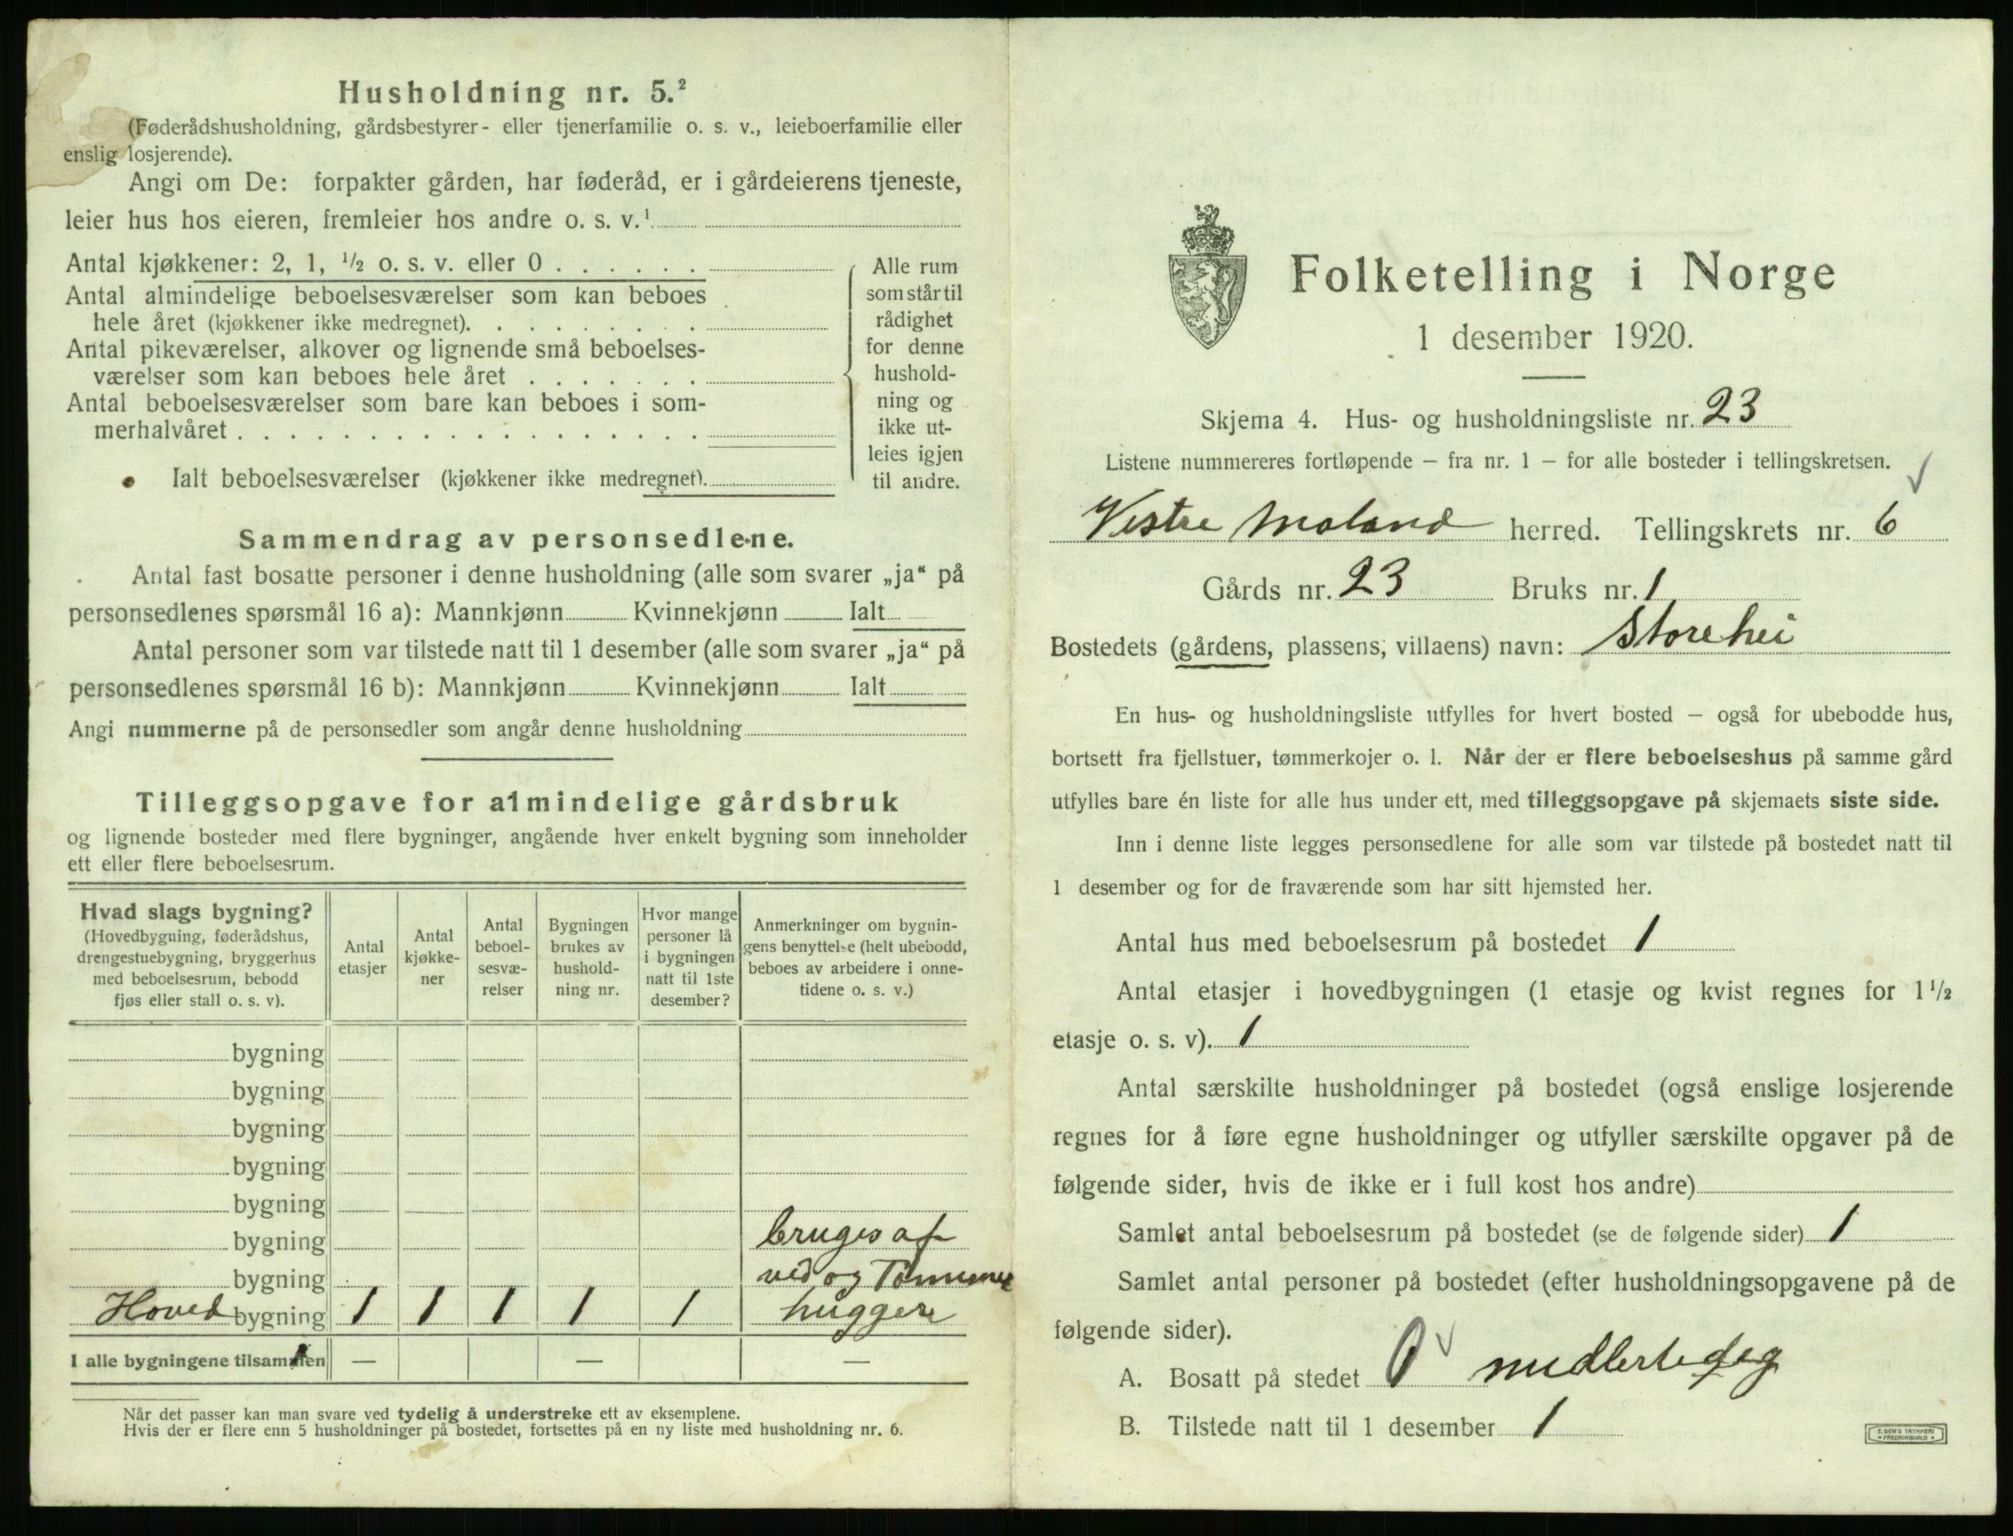 Husholdning nr. 5.²
(Føderådshusholdning, gårdsbestyrer- eller tjenerfamilie o. s. v., leieboerfamilie eller
enslig losjerende).
Angi om De: forpakter gården, har føderåd, er i gårdeierens tjeneste,
leier hus hos eieren, fremleier hos andre o. s. v.¹
Antal kjøkkener: 2, 1, ½ o. s. v. eller 0 . . . . . .
Antal almindelige beboelsesværelser som kan beboes
hele året (kjøkkener ikke medregnet). . . . . . . . .
Antal pikeværelser, alkover og lignende små beboelses-
værelser som kan beboes hele året . . . . . . .
Antal beboelsesværelser som bare kan beboes i som-
merhalvåret . . . . . . . . . . . . . . . . .
Ialt beboelsesværelser (kjøkkener ikke medregnet).
Alle rum
som står til
rådighet
for denne
hushold-
ning og
ikke ut-
leies igjen
til andre.
Sammendrag av personsedlene.
Antal fast bosatte personer i denne husholdning (alle som svarer „ja“ på
personsedlenes spørsmål 16 a): Mannkjønn Kvinnekjønn Ialt
Antal personer som var tilstede natt til 1 desember (alle som svarer „ja“ på
personsedlenes spørsmål 16 b): Mannkjønn Kvinnekjønn Ialt
Angi nummerne på de personsedler som angår denne husholdning
Tilleggsopgave for almindelige gårdsbruk
og lignende bosteder med flere bygninger, angående hver enkelt bygning som inneholder
ett eller flere beboelsesrum.
Hvad slags bygning?
(Hovedbygning, føderådshus,
drengestuebygning, bryggerhus
med beboelsesrum, bebodd
fjøs eller stall o. s. v).
Antal
etasjer
Antal
kjøkke-
ner
Antal
beboel-
sesvæ-
relser
Bygningen
brukes av
hushold-
ning nr.
Hvor mange
personer lå
i bygningen
natt til 1ste
desember?
Anmerkninger om bygnin-
gens benyttelse (helt ubebodd,
beboes av arbeidere i onne-
tidene o. s. v.)
bygning
bygning
bygning
bygning
bygning
bygning bruges af
bygning ved og Tømmer
Hoved bygning 1 1 1 1 1 huggere
I alle bygningene tilsammen — — —
Når det passer kan man svare ved tydelig å understreke ett av eksemplene.
Hvis der er flere enn 5 husholdninger på bostedet, fortsettes på en ny liste med husholdning nr. 6.
Folketelling i Norge
1 desember 1920.
Skjema 4. Hus- og husholdningsliste nr. 23
Listene nummereres fortløpende – fra nr. 1 – for alle bosteder i tellingskretsen.
Vestre Moland herred. Tellingskrets nr. 6
Gårds nr. 23 Bruks nr. 1
Bostedets (gårdens, plassens, villaens) navn: Storehei
En hus- og husholdningsliste utfylles for hvert bosted – også for ubebodde hus,
bortsett fra fjellstuer, tømmerkojer o. l. Når der er flere beboelseshus på samme gård
utfylles bare én liste for alle hus under ett, med tilleggsopgave på skjemaets siste side.
Inn i denne liste legges personsedlene for alle som var tilstede på bostedet natt til
1 desember og for de fraværende som har sitt hjemsted her.
Antal hus med beboelsesrum på bostedet 1
Antal etasjer i hovedbygningen (1 etasje og kvist regnes for 1½
etasje o. s. v). 1
Antal særskilte husholdninger på bostedet (også enslige losjerende
regnes for å føre egne husholdninger og utfyller særskilte opgaver på de
følgende sider, hvis de ikke er i full kost hos andre)
Samlet antal beboelsesrum på bostedet (se de følgende sider) 1
Samlet antal personer på bostedet (efter husholdningsopgavene på de
følgende sider).
A. Bosatt på stedet 0
B. Tilstede natt til 1 desember 1
E. SEM'S TRYKKERI
FREDRIKSHALD